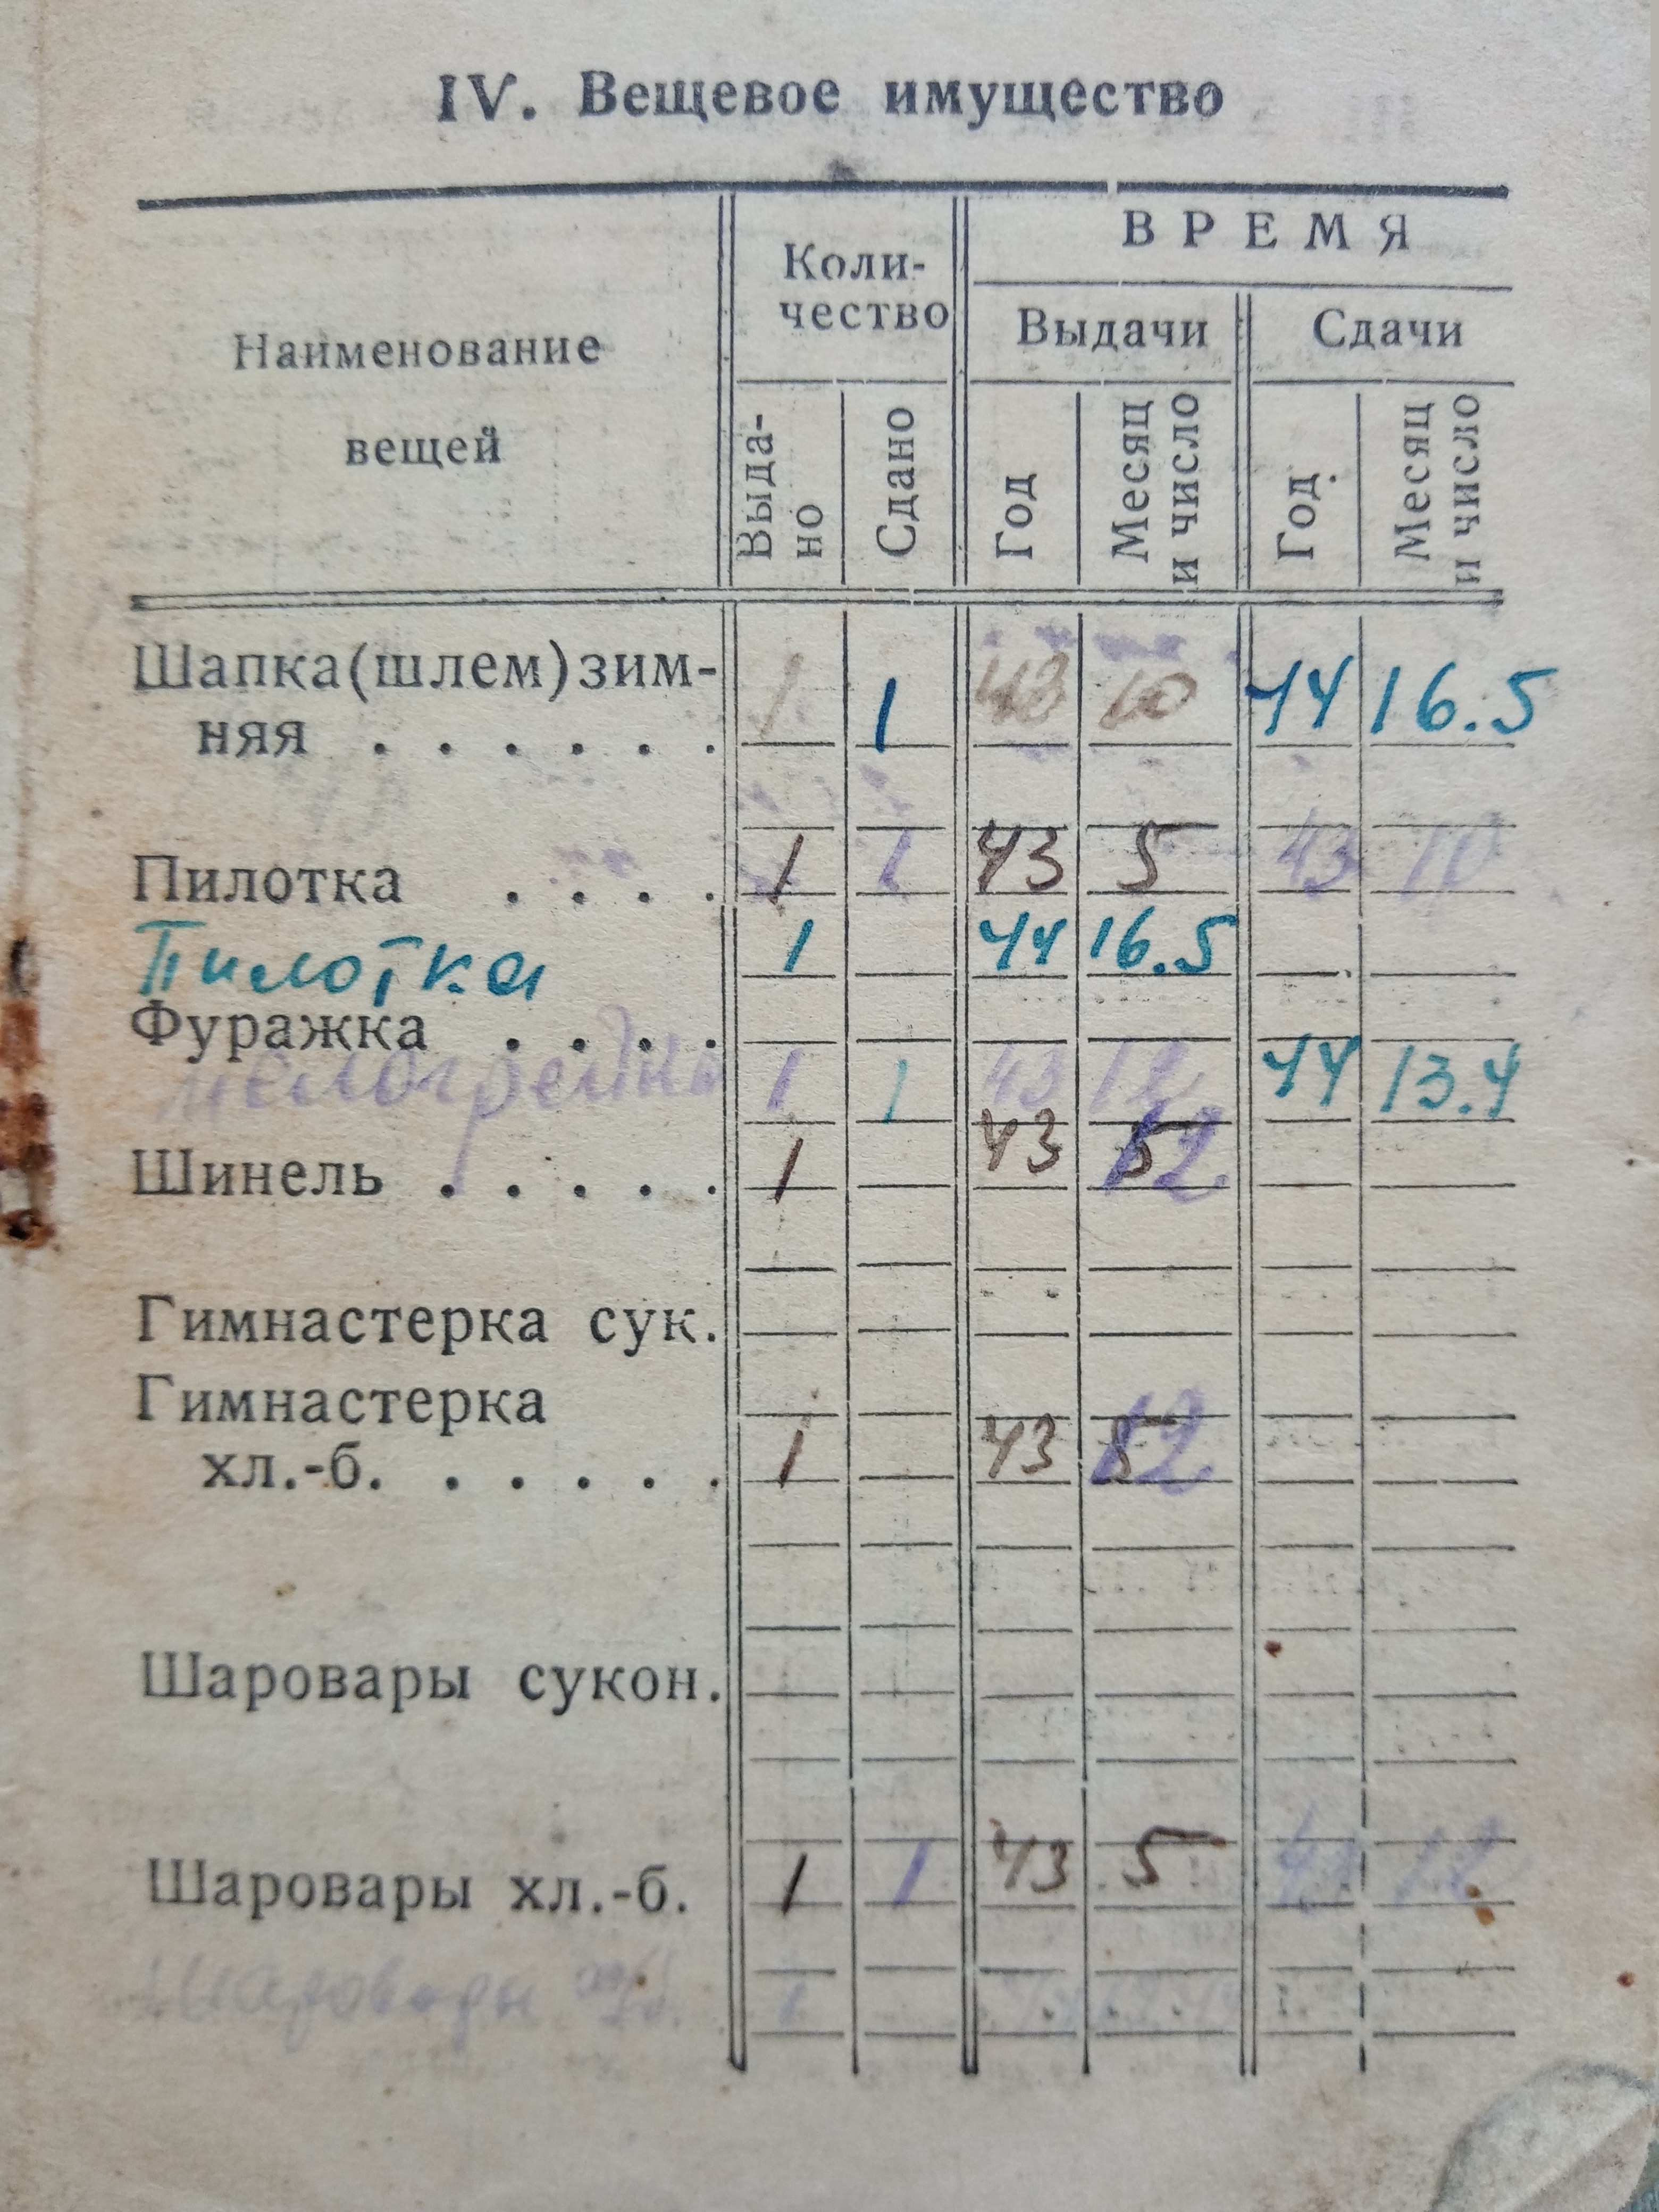 IV. Вещевое имущество
Наименование вещей
Коли-
чество
ВРЕМЯ
Выдачи
Сдачи
Выда-
но
Сдано
Год
Месяц
и число
Год
Месяц
и число
Шапка(шлем)зим-
няя . . . . . . 1 1 43 10 44 16.5
Пилотка . . . . 1 1 43 5 43 10
Пилотка 1 44 16.5
Фуражка . . . .
1 1 43 12 44 13.4
Шинель . . . . . 1 43 12
Гимнастерка сук.
Гимнастерка
хл.-б. . . . . . 1 43 12
Шаровары сукон.
Шаровары хл.-б. 1 1 43 5 43 12
Шаровары 1